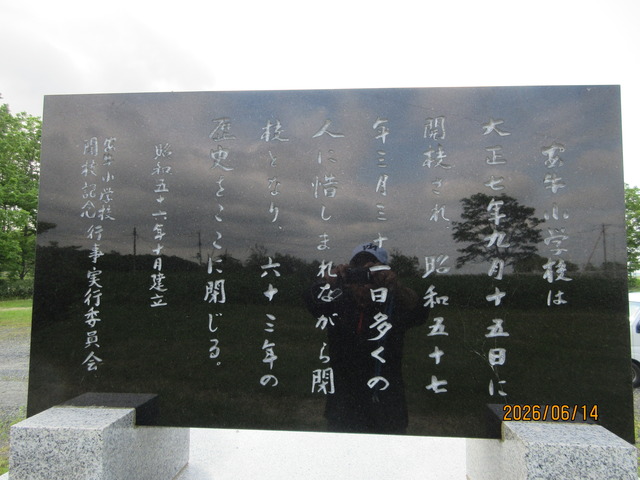 安牛小学校は
大正七年九月十五日に
開校され、昭和五十七
年三月三十一日多くの
人に惜しまれながら閉
校となり、六十三年の
歴史をここに閉じる。
昭和五十六年十月建立
安牛小学校
閉校記念行事実行委員会
2026/06/14